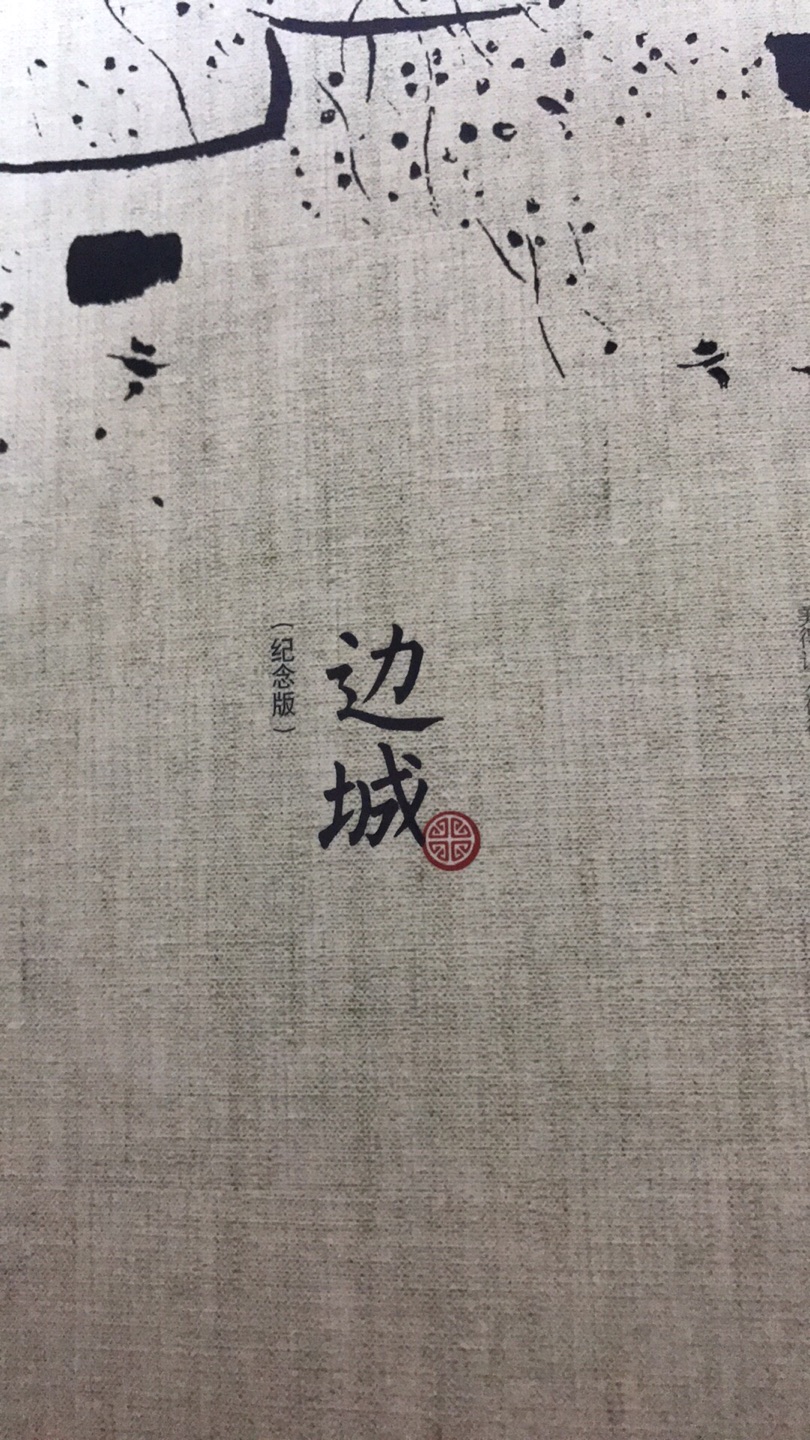 边城
（纪念版）